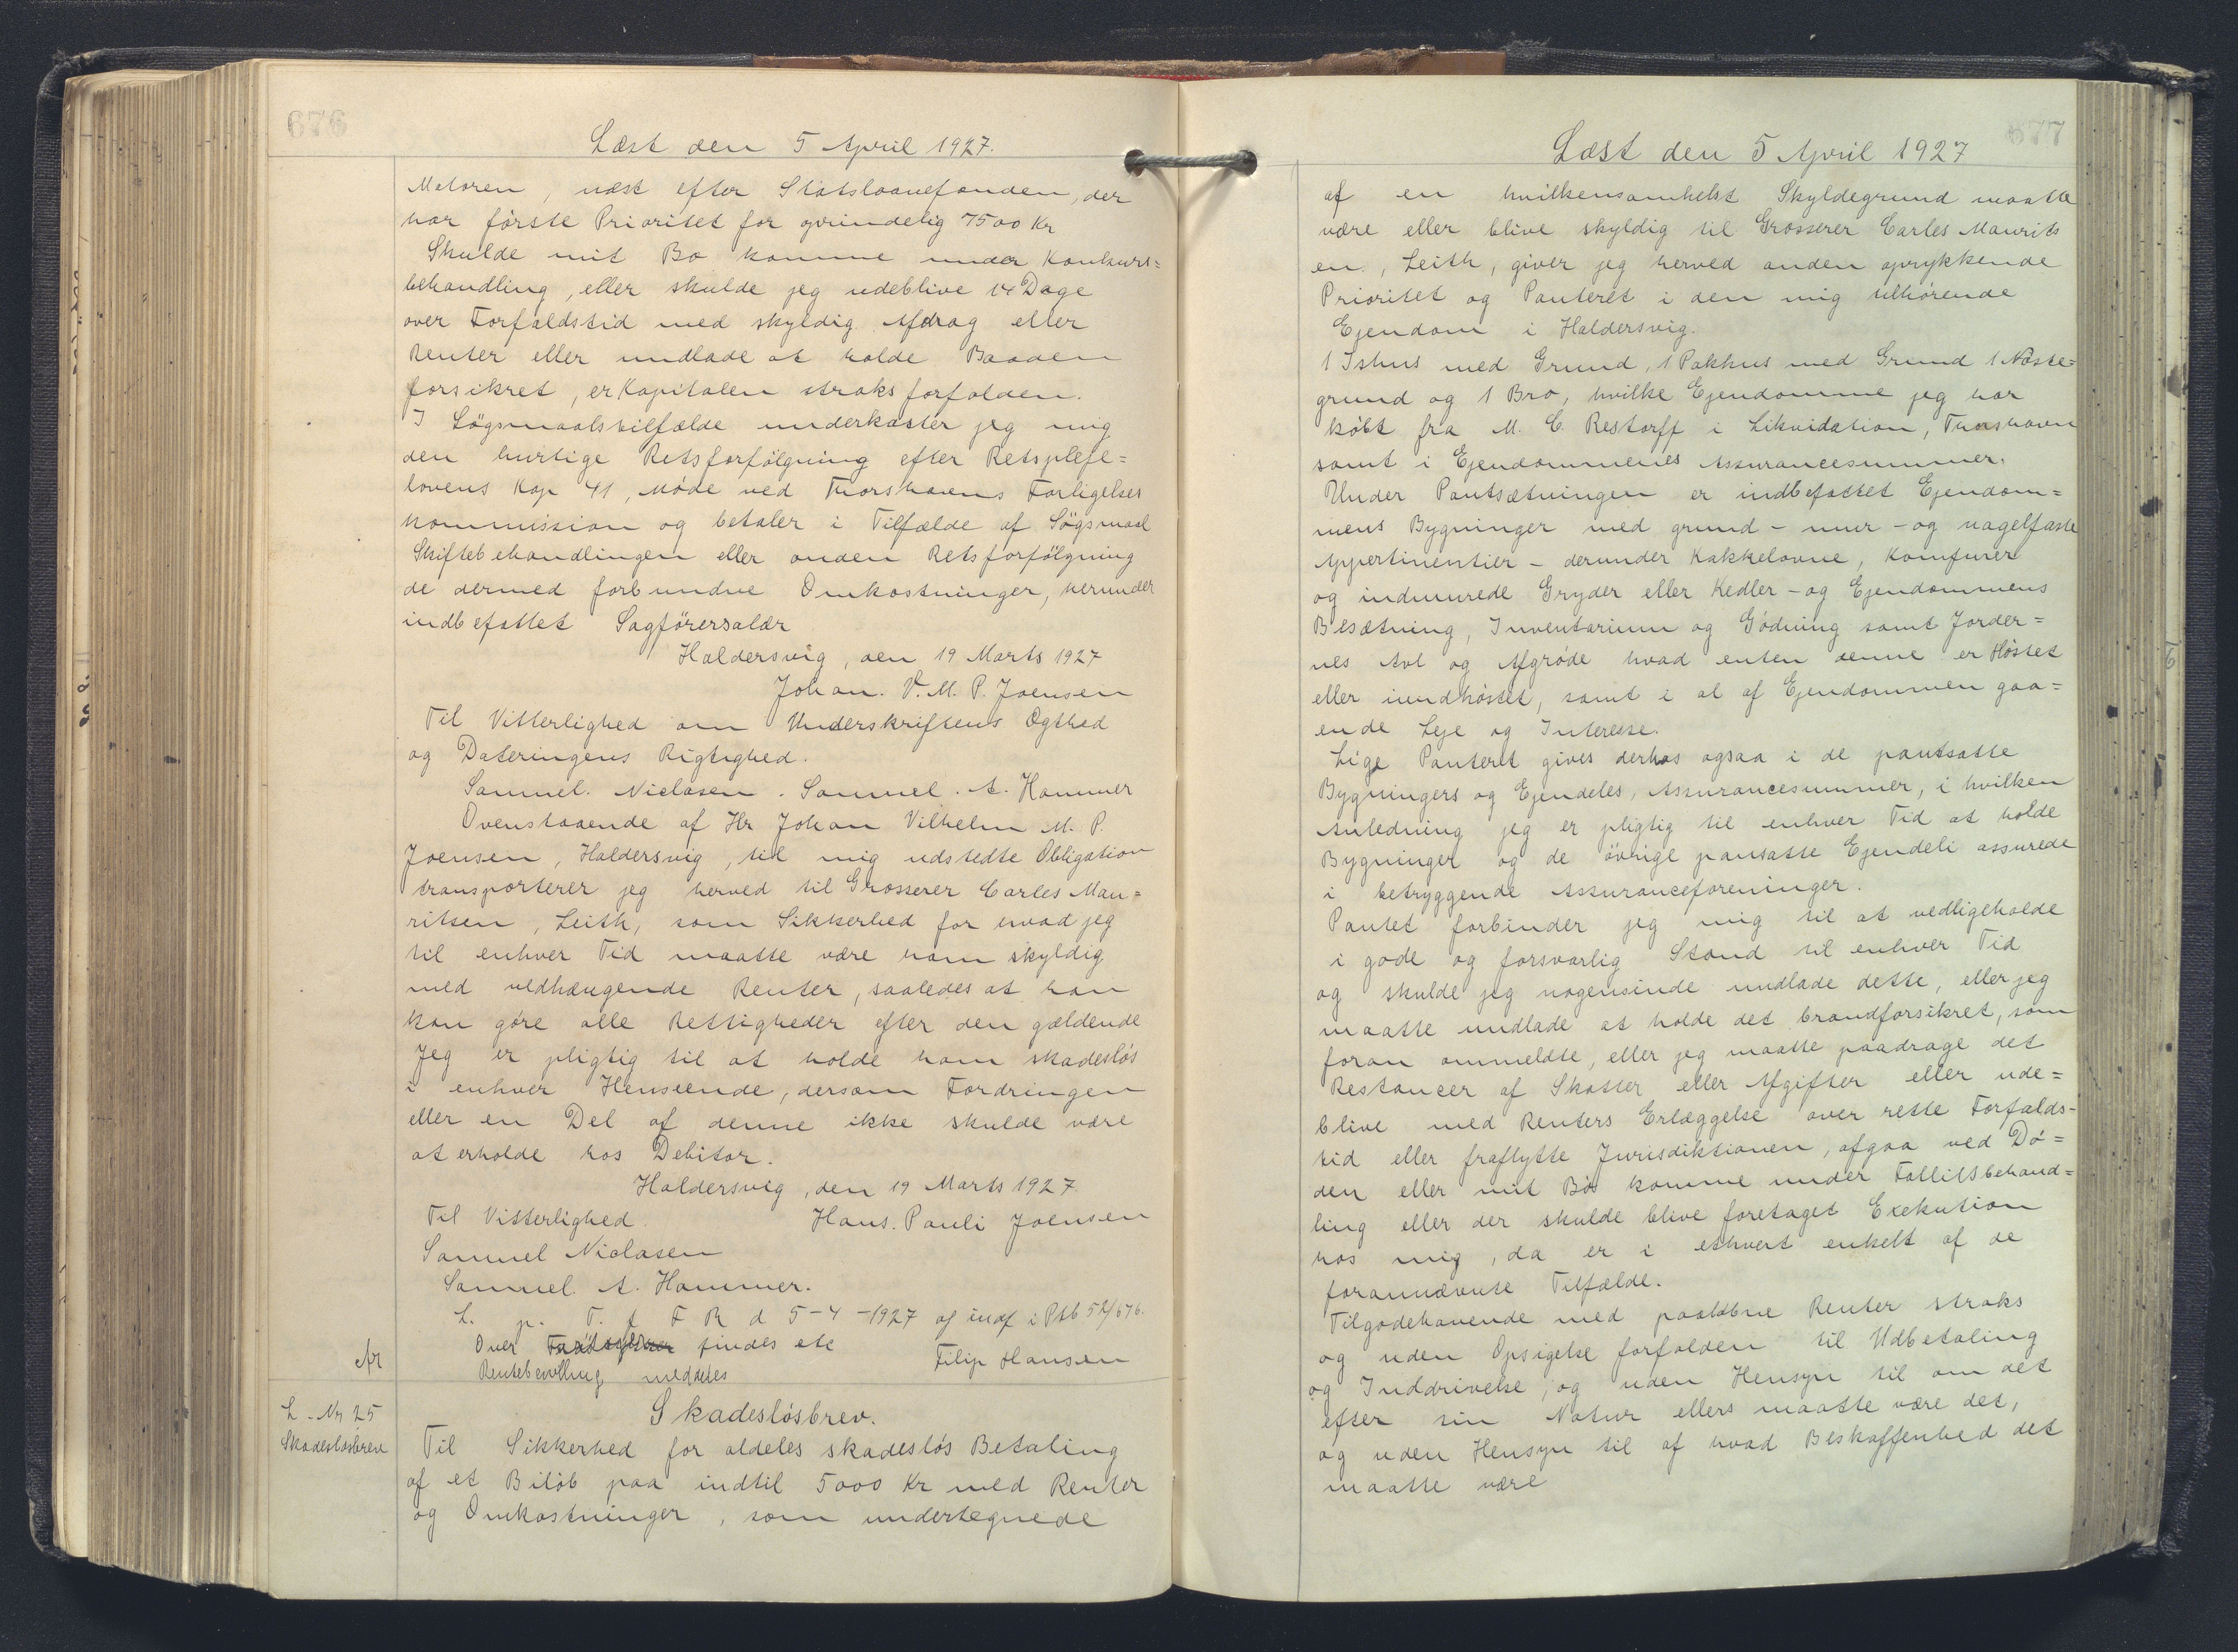 676
Læst den 5 April 1927.
Motoren, næst efter Statslaanefonden, der
har første Prioritet for oprindelig 7500 Kr
Skulde mit Bo komme under Konkurs=
behandling, eller skulde jeg udeblive 14 Dage
over Forfaldstid med skyldig Afdrag eller
Renter eller undlade at holde Baaden
forsikret, er Kapitalen straks forfalden.
I Søgsmaalstilfælde underkaster jeg mig
den hurtige Retsforfølgning efter Retspleje=
lovens Kap 41, Møde ved Thorshavns Forligelses
kommission og betaler i Tilfælde af Søgsmaal
Skiftebehandlingen eller anden Retsforfølgning
de dermed forbundne Omkostninger, herunder
indbefattet Sagførersalær
Haldersvig, den 19 Marts 1927
Johan. V. M. P. Joensen
Til Vitterlighed om Underskriftens Ægthed
og Dateringens Rigtighed.
Samuel. Niclasen. Samuel. A. Hammer
Ovenstaaende af Hr Johan Vilhelm M. P.
Joensen, Haldersvig, til mig udstedte Obligation
transporterer jeg herved til Grosserer Carles Mau=
ritsen, Leith, som Sikkerhed for hvad jeg
til enhver Tid maatte være ham skyldig
med vedhængende Renter, saaledes at han
kan gøre alle Rettigheder efter den gældende
Jeg er pligtig til at holde ham skadesløs
i enhver Henseende, dersom Fordringen
eller en Del af denne ikke skulde være
at erholde hos Debitor.
Haldersvig, den 19 Marts 1927.
Til Vitterlighed. Hans. Pauli Joensen
Samuel Niclasen
Samuel. A. Hammer.
L. p. T. f F R d 5-4-1927 og indf i Ptb 52/676.
Over findes etc
Filip Hansen
Rentebevilling meddeles
L. Nr 25
Skadesløsbrev
Skadesløsbrev.
Til Sikkerhed for aldeles skadesløs Betaling
af et Beløb paa indtil 5000 Kr med Renter
og Omkostninger, som undertegnede
677
Læst den 5 April 1927
af en hvilkensomhelst Skyldegrund maatte
være eller blive skyldig til Grosserer Carles Maurits
en, Leith, giver jeg herved anden oprykkende
Prioritet og Panteret i den mig tilhørende
Ejendom i Haldersvig.
1 Ishus med Grund, 1 Pakhus med Grund 1 Nøste=
grund og 1 Bro, hvilke Ejendomme jeg har
købt fra M. C. Restorff i Likvidation, Thorshavn
samt i Ejendommenes Assurancesummer.
Under Pantsætningen er indbefattet Ejendom=
mens Bygninger med grund- mur- og nagelfaste
Appertinentier - derunder Kakkelovne, Komfurer
og indmurede Gryder eller Kedler - og Ejendommens
Besætning, Inventarium og Gødning samt Jorder=
nes Avl og Afgrøde hvad enten denne er Høstet
eller uindhøstet, samt i al af Ejendommen gaa=
ende Leje og Interesse.
Lige Panteret gives derhos ogsaa i de pantsatte
Bygningers og Ejendeles, Assurancesummer, i hvilken
Anledning jeg er pligtig til enhver Tid at holde
Bygninger og de øvrige pansatte Ejendele assurede
i betryggende Assuranceforeninger.
Pantet forbinder jeg mig til at vedligeholde
i gode og forsvarlig Stand til enhver Tid
og skulde jeg nogensinde undlade dette, eller jeg
maatte undlade at holde det brandforsikret, som
foran ommeldte, eller jeg maatte paadrage det
Restancer af Skatter eller Afgifter eller ude=
blive med Renters Erlæggelse over rette Forfalds-
tid eller fraflytte Jurisdiktionen, afgaa ved Dø=
den eller mit Bo komme under Fallitsbehand=
ling eller der skulde blive foretaget Exekution
hos mig, da er i ethvert enkelt af de
forannævnte Tilfælde.
Tilgodehavende med paaløbne Renter straks
og uden Opsigelse forfalden til Udbetaling
og Inddrivelse, og uden Hensyn til om det
efter sin Natur ellers maatte være det,
og uden Hensyn til af hvad Beskaffenhed det
maatte være